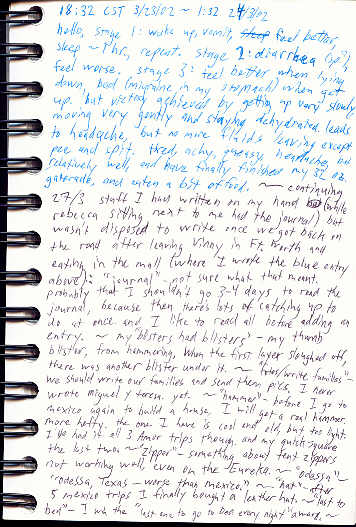 18:32 CST 3/23/02 ~ 1:32 24/3/02
hello, stage 1: wake up, vomit, feel better,
sleep ~ 1 hr, repeat. stage 2: diarrhea
feel worse. stage 3: feel better when lying
down, bad (migraine in my stomach) when get
up. but victory achieved by getting up very slowly
moving very gently and staying dehydrated. leads
to headache, but no more fluids leaving except
pee and spit. tired, achy, queasy, headache, but
relatively well, and have finally finished my 32 oz.
gatorade, and eaten a bit of food. ~ continuing
27/3 stuff I had written on my hand (while
rebecca sitting next to me had the journal) but
wasn't disposed to write once we got back on
the road after leaving Vinny in Ft. Worth and
eating in the mall (where I wrote the blue entry
above): ~ "journal" - not sure what that meant.
probably that I shouldn't go 3-4 days to read the
journal, because then there's lots of catching up to
do at once and I like to read all before adding an
entry. ~ "my blisters had blisters" - my thumb
blister, from hammering. when the first layer sloughed off,
there was another blister under it. ~ write families" -
we should write our families and send them pics, I never
wrote miguel y teresa yet. ~ "hammer" - before I go to
mexico again to build a house, I will get a real hammer.
more hefty. the one I have is cool and old, but too light.
I had it all 3 trips though, and my quick square
the last two. ~ "zipper" - something about tent zippers
not working well, even on the Eureka. ~ "odessa" ~
"odessa, texas - worse than mexico." ~ "hat" - after
5 mexico trips I finally bought a leather hat. ~ "last to
bed" - I win the "last one to go to bed every night" award. ~